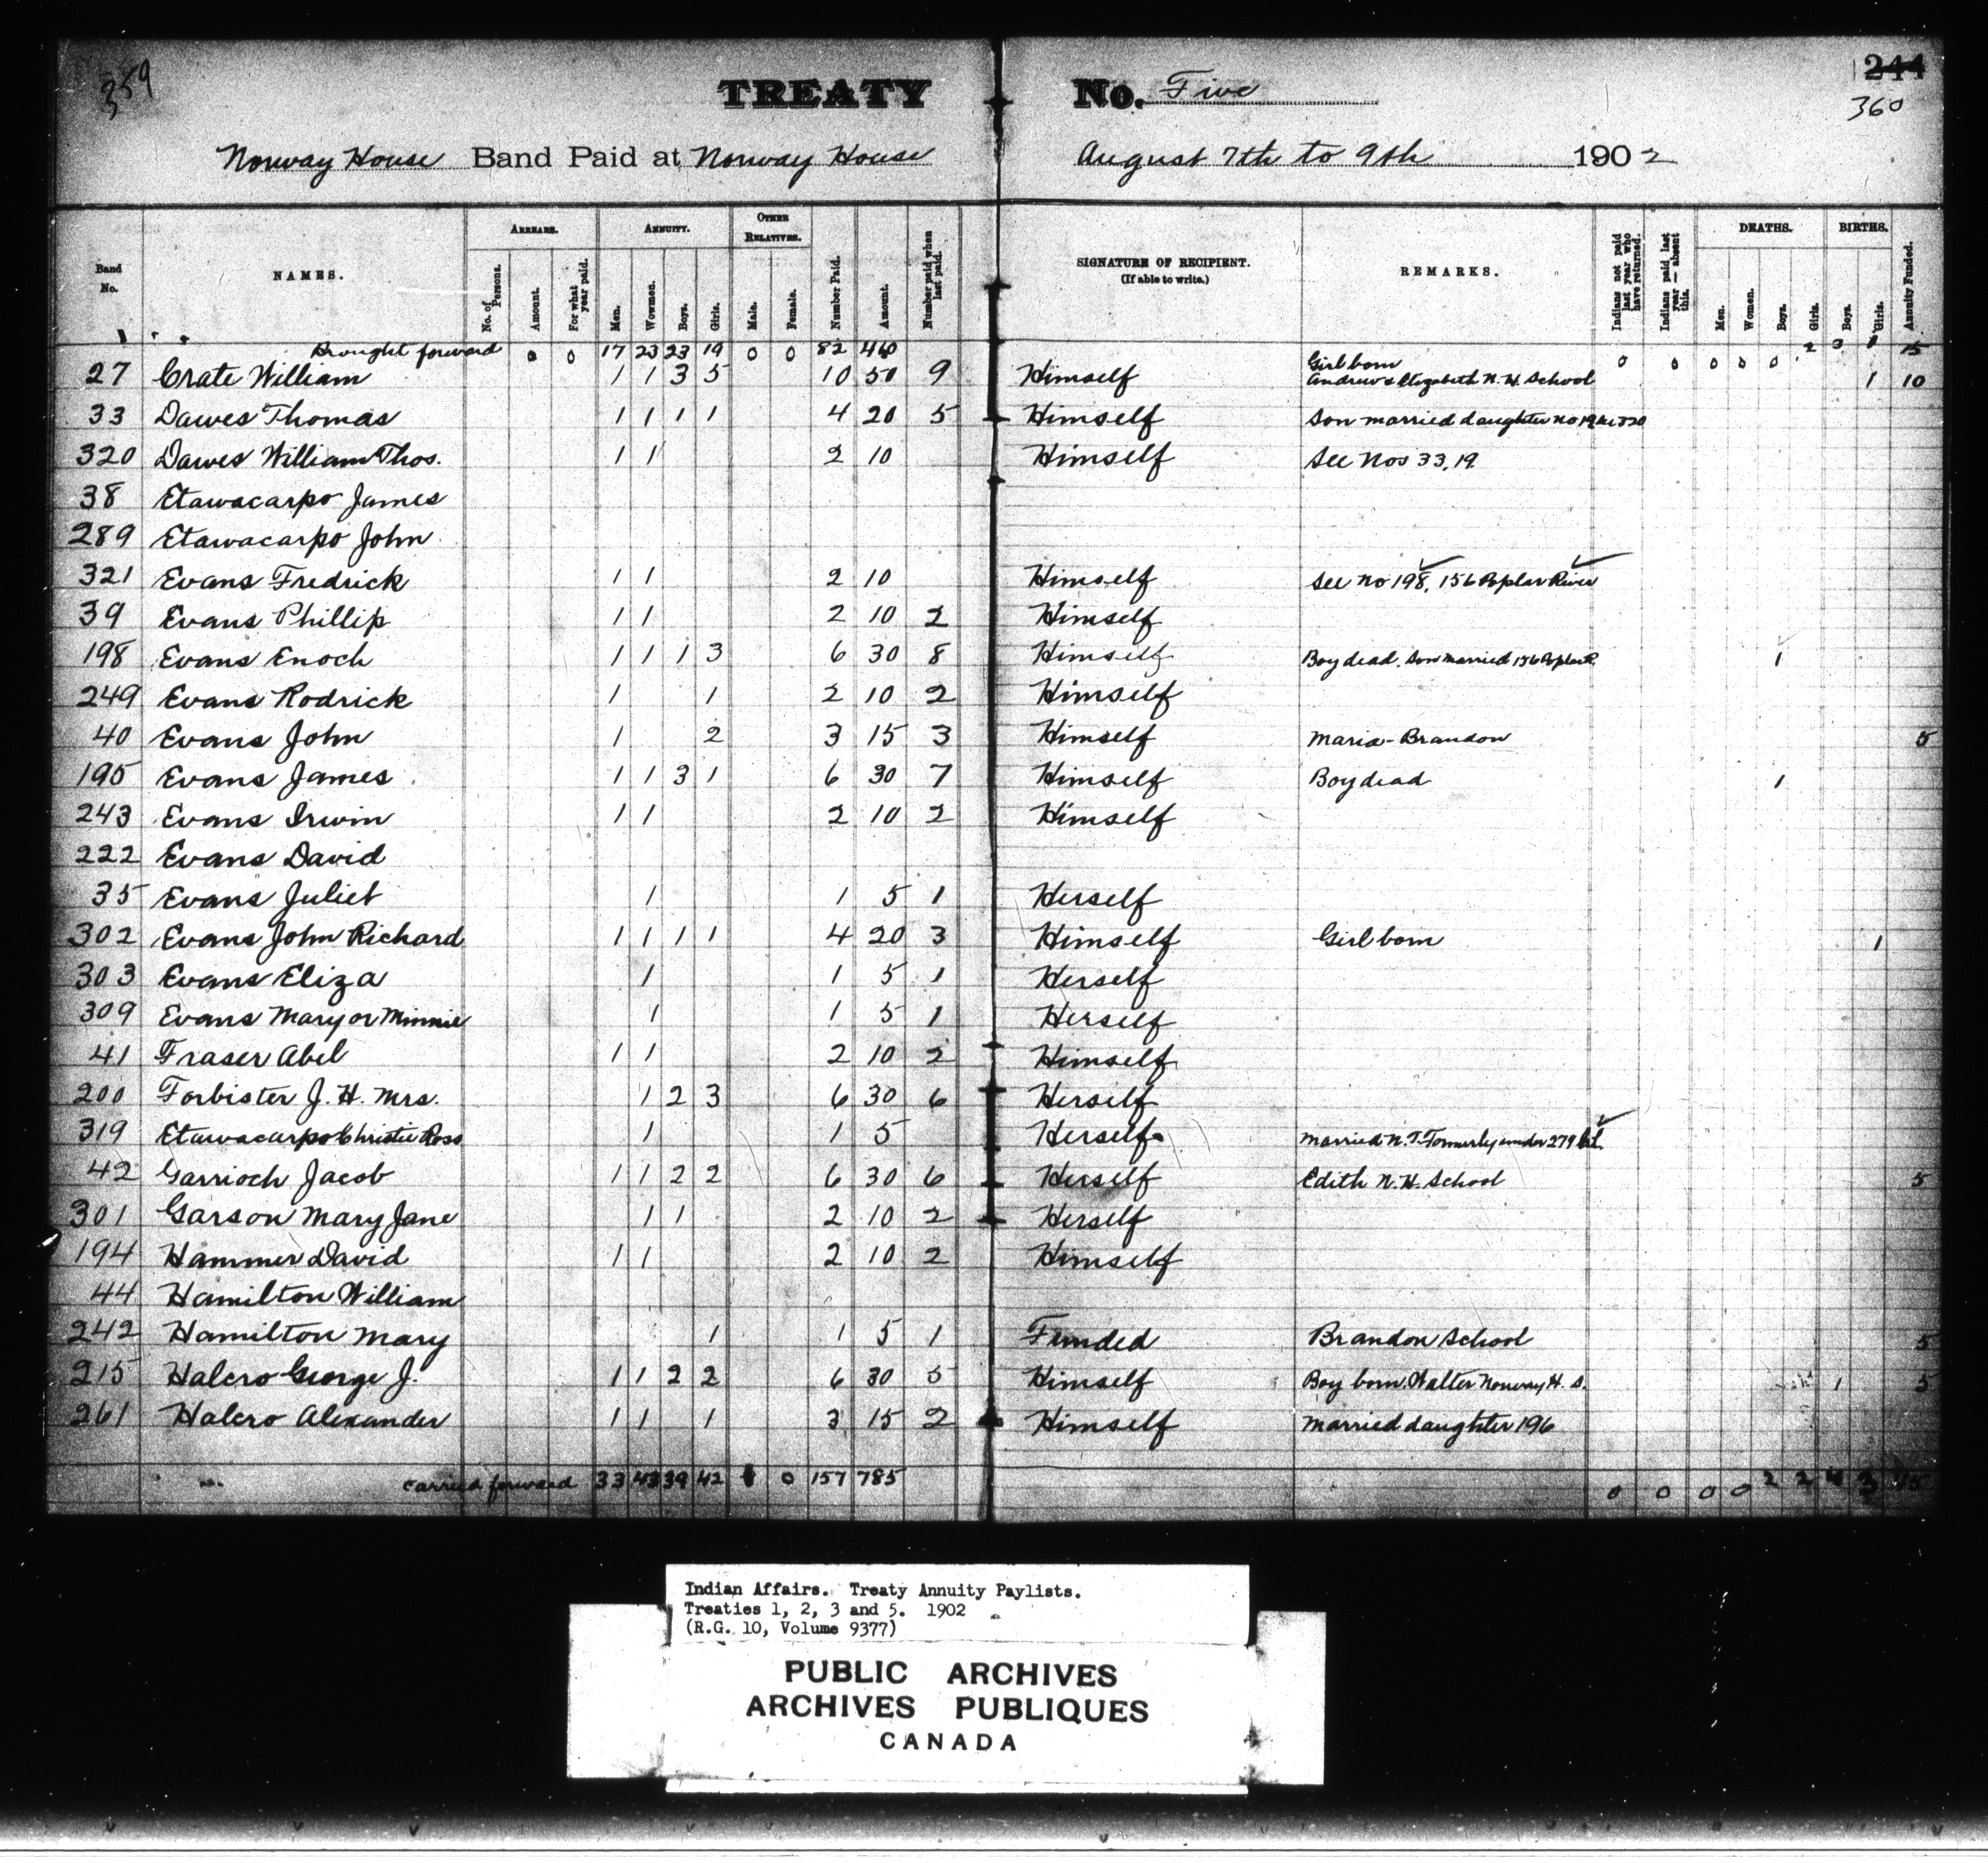 359
TREATY No. Five
244
360
Norway House Band Paid at Norway House August 7th to 9th 1902
Band No. NAMES. ARREARS. No. of Persons. Amount. For what year paid. ANNUITY. Men. Wowmen. Boys. Girls. OTHER RELATIVES. Male. Female. Number Paid. Amount. Number paid when last paid. SIGNATURE OF RECIPIENT. (If able to write.) REMARKS. Indians not paid last year who have returned. Indians paid last year — absent this. DEATHS. Men. Women. Boys. Girls. BIRTHS. Boys. Girls. Annuity Funded.
Brought forward 0 0 17 23 23 19 0 0 82 410 0 0 0 0 0 2 3 1 15
27 Crate William 1 1 3 5 10 50 9 Himself Girl born Andrew & Elizabeth N. H. School 1 10
33 Dawes Thomas 1 1 1 1 4 20 5 Himself Son married daughter No 19 see 320
320 Dawes William Thos. 1 1 2 10 Himself See Nos 33, 19
38 Etawacarpo James
289 Etawacarpo John
321 Evans Fredrick 1 1 2 10 Himself See No 198, 156 Poplar River
39 Evans Phillip 1 1 2 10 2 Himself
198 Evans Enoch 1 1 1 3 6 30 8 Himself Boy dead. Son married 156 Poplar R. 1
249 Evans Rodrick 1 1 2 10 2 Himself
40 Evans John 1 2 3 15 3 Himself Maria - Brandon 5
195 Evans James 1 1 3 1 6 30 7 Himself Boy dead 1
243 Evans Irwin 1 1 2 10 2 Himself
222 Evans David
35 Evans Juliet 1 1 5 1 Herself
302 Evans John Richard 1 1 1 1 4 20 3 Himself Girl born 1
303 Evans Eliza 1 1 5 1 Herself
309 Evans Mary or Minnie 1 1 5 1 Herself
41 Fraser Abel 1 1 2 10 2 Himself
200 Forbister J. H. Mrs. 1 2 3 6 30 6 Herself
319 Etawacarpo Christie Ross 1 1 5 Herself Married N. T. Formerly under 279
42 Garrioch Jacob 1 1 2 2 6 30 6 Herself Edith N. H. School 5
301 Garson Mary Jane 1 1 2 10 2 Herself
194 Hammer David 1 1 2 10 2 Himself
44 Hamilton William
242 Hamilton Mary 1 1 5 1 Funded Brandon School 5
215 Halcro George J. 1 1 2 2 6 30 5 Himself Boy born. Walter Norway H. S. 1 5
261 Halcro Alexander 1 1 1 3 15 2 Himself Married daughter 196
Carried forward 33 43 39 42 0 157 785 0 0 0 0 2 2 4 3
Indian Affairs. Treaty Annuity Paylists.
Treaties 1, 2, 3 and 5. 1902
(R.G. 10, Volume 9377)
PUBLIC ARCHIVES
ARCHIVES PUBLIQUES
CANADA